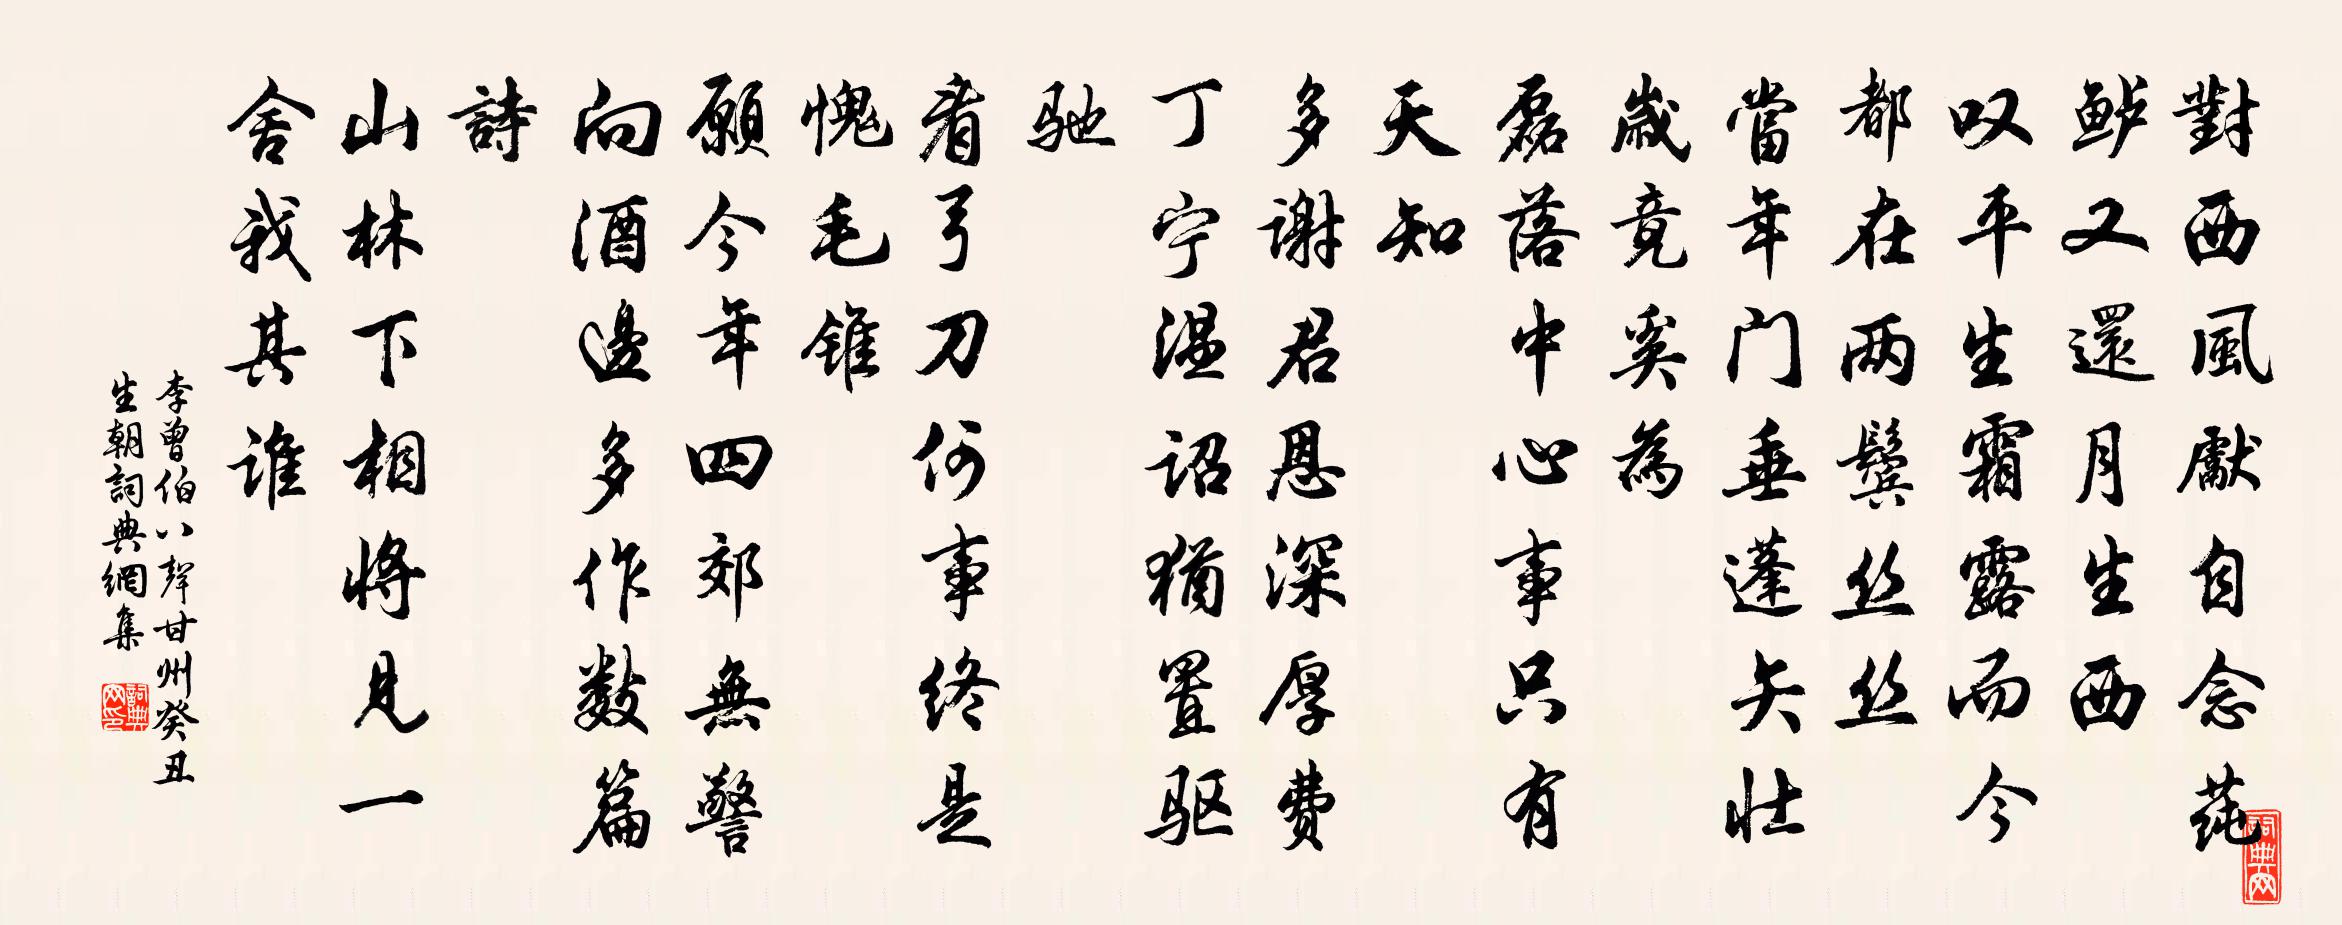 對西風獻自念莼
鲈又還月生西
叹平生霜露而今
都在两鬓丝丝
當年门垂蓬矢壮
歲竟奚為
磊落中心事只有
天知
多謝君恩深厚費
丁宁温诏猶置驱
驰
看弓刀何事终是
愧毛锥
願今年四郊無警
向酒邊多作數篇
詩
山林下相将見一
舍我其谁
李曾伯八聲甘州癸丑
生朝詞典網集
詞典网印
詞典网